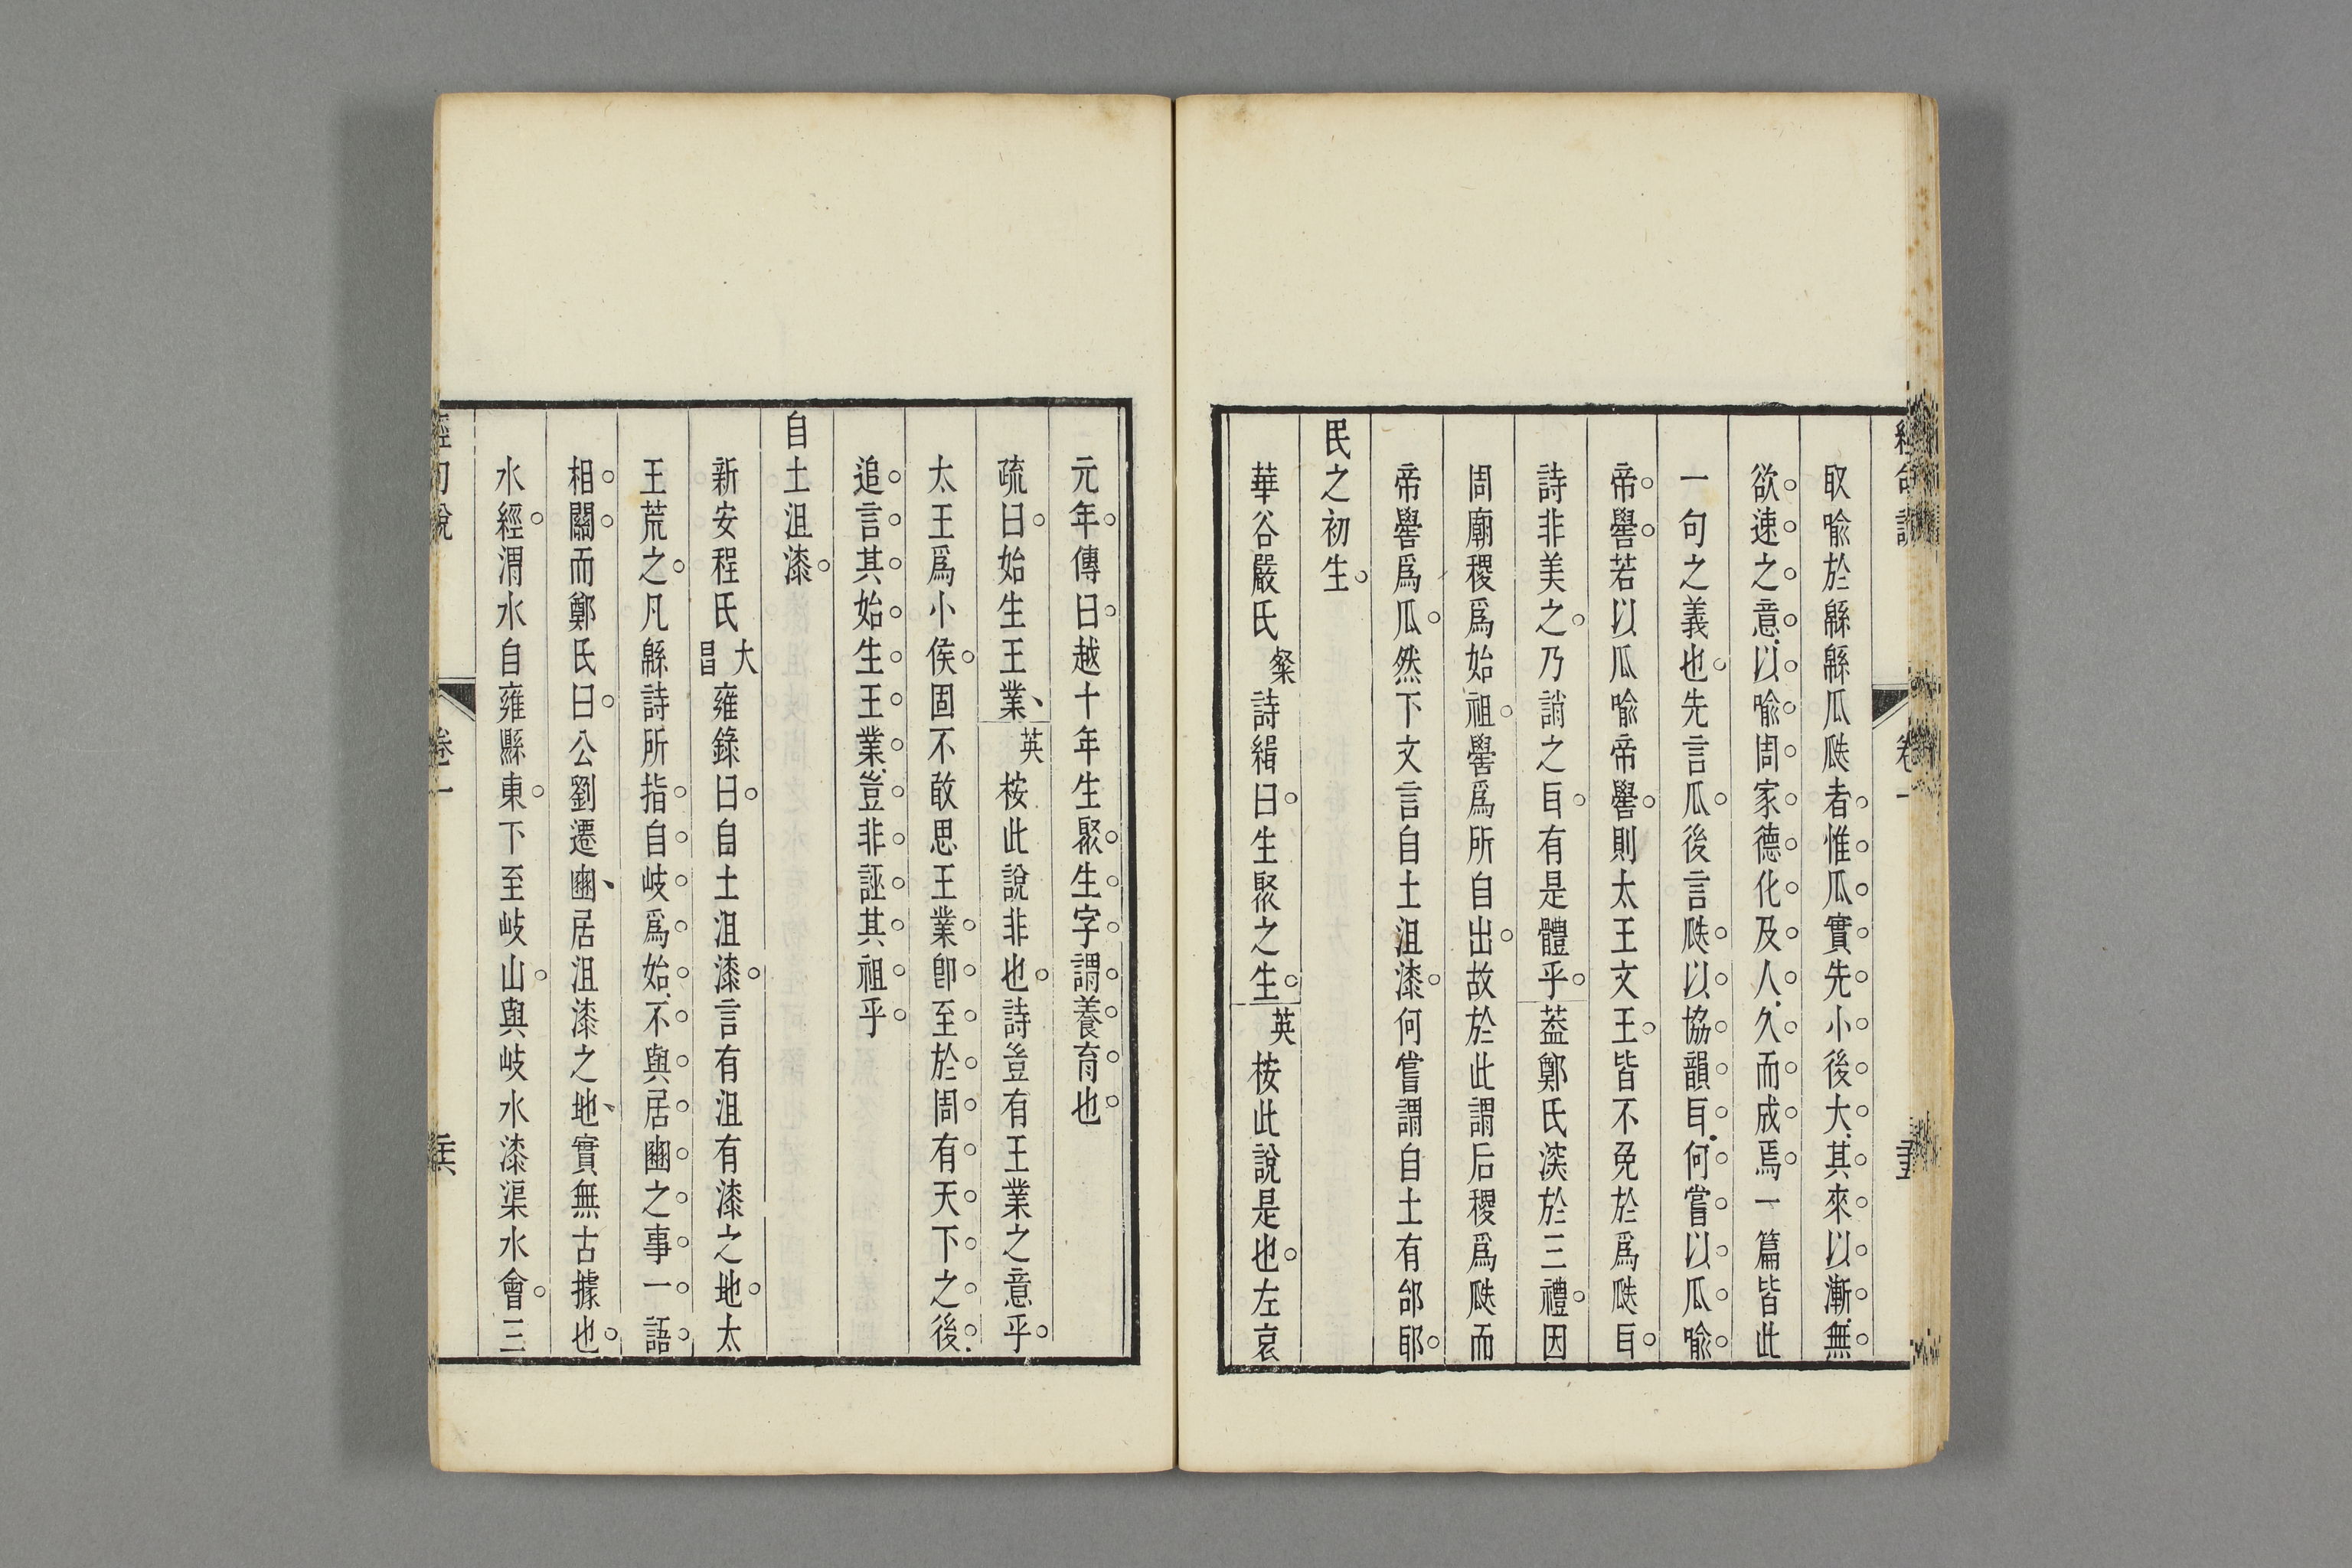 取喻於緜緜瓜瓞者惟瓜實先小後大其來以漸無
欲速之意以喻周家德化及人久而成焉一篇皆此
一句之義也先言瓜後言瓞以協韻耳何嘗以瓜喻
帝嚳若以瓜喻帝嚳則太王文王皆不免於爲瓞耳
詩非美之乃誚之耳有是體乎葢鄭氏深於三禮因
周廟稷爲始祖嚳爲所自出故於此謂后稷爲瓞而
帝嚳爲瓜然下文言自土沮漆何嘗謂自土有邰耶
民之初生
華谷嚴氏粲詩緝曰生聚之生英桉此說是也左哀
元年傳曰越十年生聚生字謂養育也
疏曰始生王業英桉此說非也詩豈有王業之意乎
太王爲小侯固不敢思王業卽至於周有天下之後
追言其始生王業豈非誣其祖乎
自土沮漆
新安程氏大昌雍錄曰自土沮漆言有沮有漆之地太
王荒之凡緜詩所指自岐爲始不與居豳之事一語
相關而鄭氏曰公劉遷豳居沮漆之地實無古據也
水經渭水自雍縣東下至岐山與岐水漆渠水會三
經句說
卷一